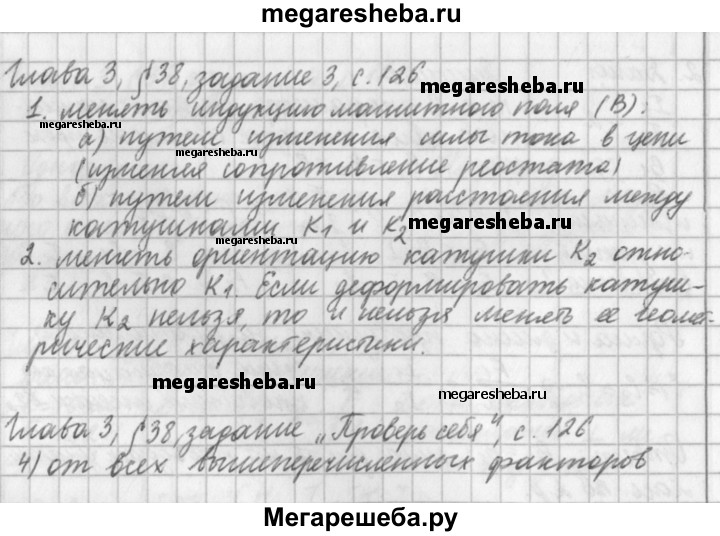 megaresheba.ru
Глава 3, §38, задание 3, с. 126
megaresheba.ru
1. менять индукцию магнитного поля (В):
megaresheba.ru
а) путем изменения силы тока в цепи
megaresheba.ru
(изменяя сопротивление реостата)
б) путем изменения расстояния между
катушками К₁ и К₂
megaresheba.ru
megaresheba.ru
2. менять ориентацию катушки К₂ отно-
сительно К₁. Если деформировать катуш-
ку К₂ нельзя, то и нельзя менять ее геомет-
рические характеристики.
megaresheba.ru
megaresheba.ru
Глава 3, §38, задание „Проверь себя", с. 126
4) от всех вышеперечисленных факторов
Мегарешеба.ру